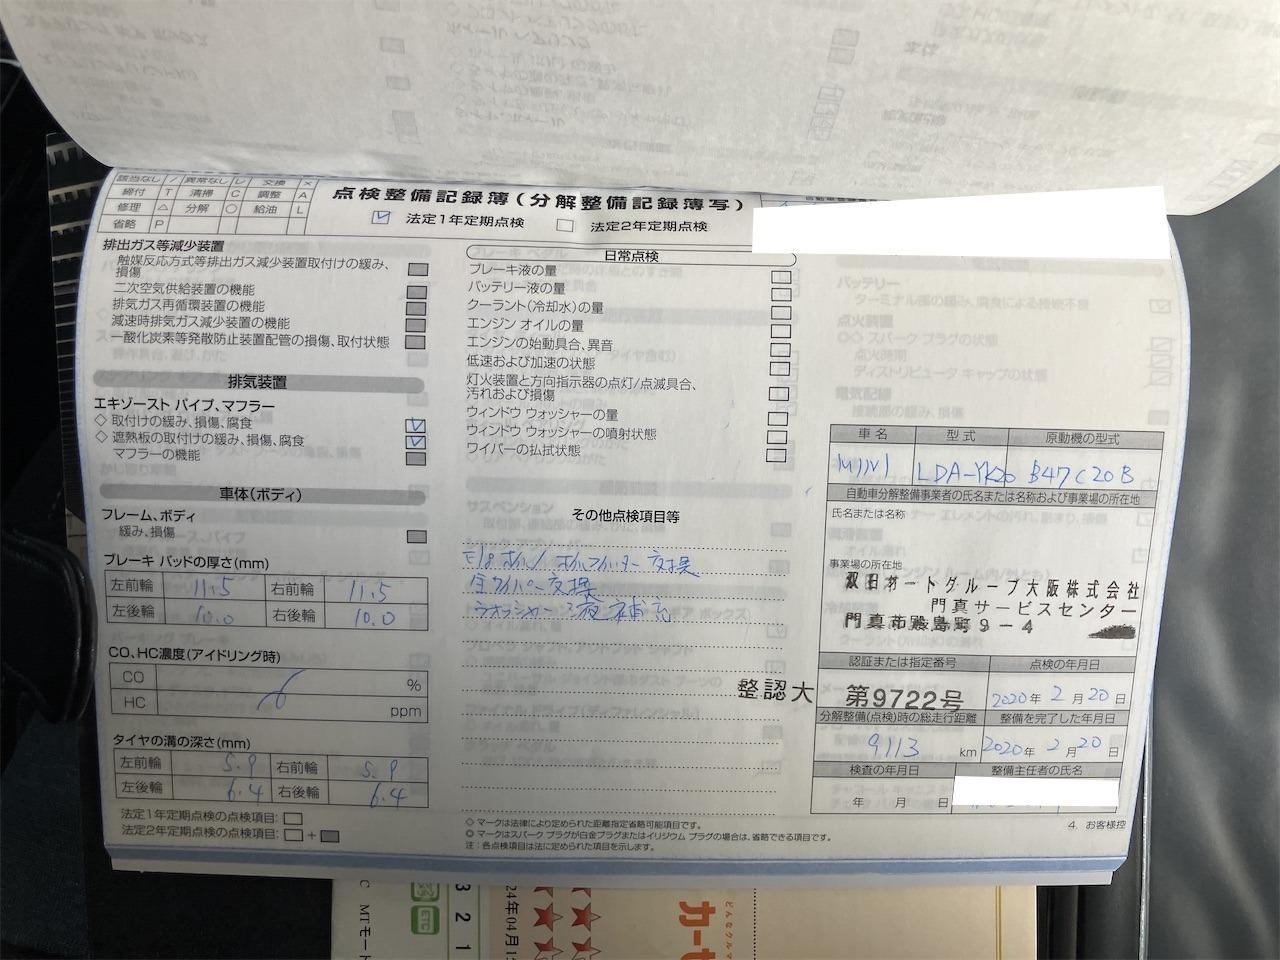 該当なし / 異常なし レ 交換 ×
締付 T 清掃 C 調整 A
修理 △ 分解 ○ 給油 L
省略 P
点検整備記録簿(分解整備記録簿写)
法定1年定期点検 法定2年定期点検
排出ガス等減少装置
触媒反応方式等排出ガス減少装置取付けの緩み、
損傷
二次空気供給装置の機能
排気ガス再循環装置の機能
減速時排気ガス減少装置の機能
一酸化炭素等発散防止装置配管の損傷、取付状態
排気装置
エキゾースト パイプ、マフラー
◇ 取付けの緩み、損傷、腐食
◇ 遮熱板の取付けの緩み、損傷、腐食
マフラーの機能
車体(ボディ)
フレーム、ボディ
緩み、損傷
ブレーキ パッドの厚さ(mm)
左前輪 11.5 右前輪 11.5
左後輪 10.0 右後輪 10.0
CO、HC濃度(アイドリング時)
CO %
HC ppm
タイヤの溝の深さ(mm)
左前輪 5.9 右前輪 5.9
左後輪 6.4 右後輪 6.4
法定1年定期点検の点検項目:
法定2年定期点検の点検項目: +
日常点検
ブレーキ液の量
バッテリー液の量
クーラント(冷却水)の量
エンジン オイルの量
エンジンの始動具合、異音
低速および加速の状態
灯火装置と方向指示器の点灯/点滅具合、
汚れおよび損傷
ウィンドウ ウォッシャーの量
ウィンドウ ウォッシャーの噴射状態
ワイパーの払拭状態
その他点検項目等
E/g オイル オイルフィルター交換
全ワイパー交換
ウオッシャー液補充
◇ マークは法律により定められた距離指定省略可能項目です。
◎ マークはスパーク プラグが白金プラグまたはイリジウム プラグの場合は、省略できる項目です。
注：各点検項目は法に定められた項目を示します。
車名 型式 原動機の型式
MINI LDA-YK20 B47C20B
自動車分解整備事業者の氏名または名称および事業場の所在地
氏名または名称
事業場の所在地
双日オートグループ大阪株式会社
門真サービスセンター
門真市殿島町9-4
認証または指定番号 点検の年月日
整認大 第9722号 2020年 2月20日
分解整備(点検)時の総走行距離 整備を完了した年月日
9113 km 2020年 2月20日
検査の年月日 整備主任者の氏名
年 月 日
4. お客様控
バッテリー
ターミナル部の緩み、腐食による接続不良
点火装置
スパーク プラグの状態
点火時期
ディストリビュータ キャップの状態
電気配線
接続部の緩み、損傷
C MTモード
ETC
3 2 1
24年04月1
どんなクルマ
カーセ